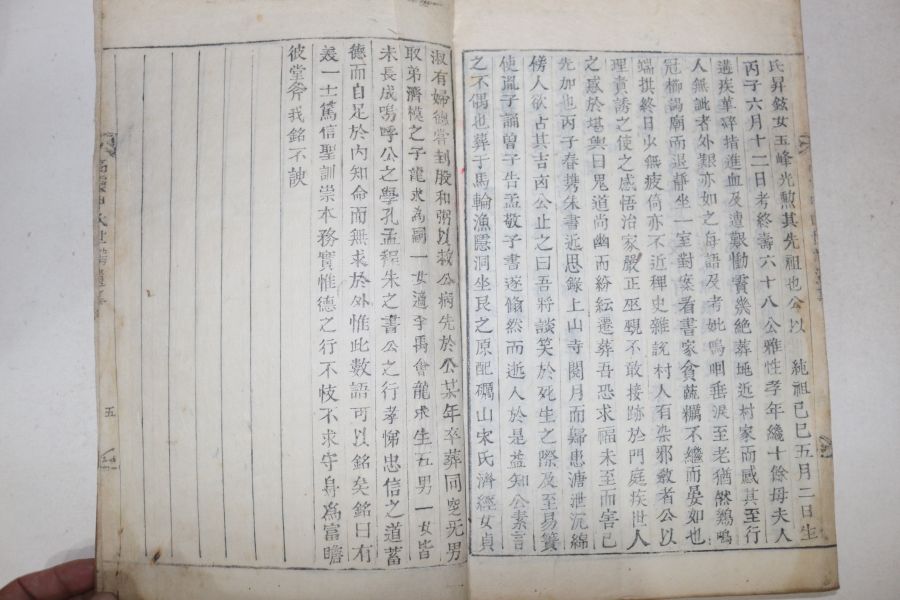 氏昇鉉女玉峰光勲其先祖也公以 純祖己巳五月二日生
丙子六月十二日考終壽六十八公雅性孝年纔十餘母夫人
遘疾革碎指進血及遭艱慟霣幾絶葬地近村家而感其至行
人無訛者外艱亦如之每語及考妣嗚咽垂淚至老猶然鷄鳴
冠櫛謁廟而退靜坐一室對案看書家貧蔬糲不繼而晏如也
端拱終日少無疲倚亦不近稗史雜說村人有染邪敎者公以
理責誘之使之感悟治家嚴正巫覡不敢接跡於門庭疾世人
之惑於堪輿曰鬼道尚幽而紛紜遷葬吾恐求福未至而害已
先加也丙子春携朱書近思錄上山寺閱月而歸患溏泄沉綿
傍人欲占其吉凶公止之曰吾將談笑於死生之際及至易簀
使胤子誦曾子告孟敬子書遂翛然而逝人於是益知公素言
之不偶也葬于馬輪漁隱洞坐艮之原配礪山宋氏濟經女貞
淑有婦德嘗刲股和粥以救公病先於公某年卒葬同兆无男
取弟濟模之子龍求為嗣一女適李再會龍求生五男一女皆
未長成嗚呼公之學孔孟程朱之書公之行孝悌忠信之道蓄
德而自足於內知命而無求於外惟此數語可以銘矣銘曰有
美一士篤信聖訓崇本務實惟德之行不忮不求守身為富瞻
彼堂斧我銘不諛
五